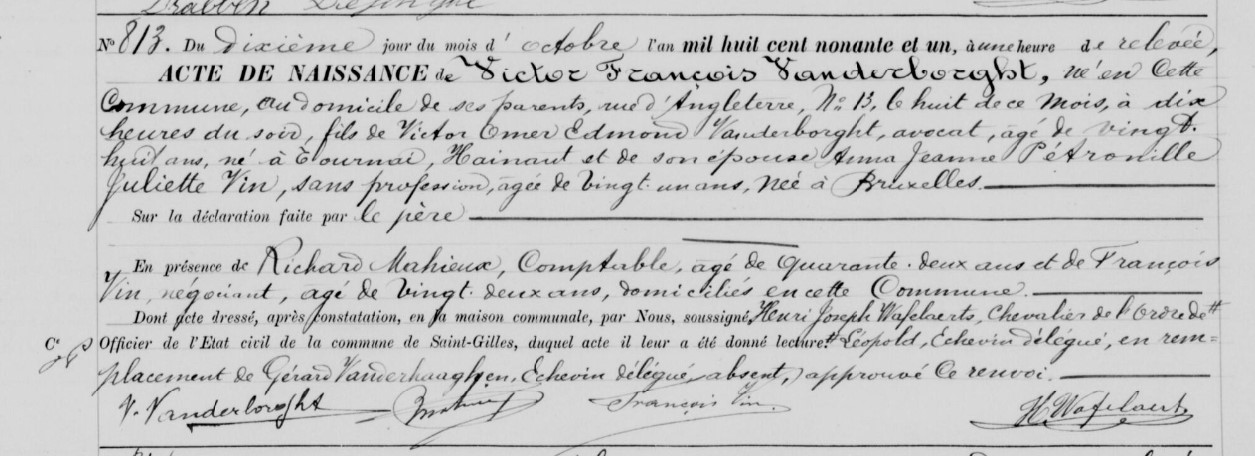 N° 813. Du dixième jour du mois d'octobre l'an mil huit cent nonante et un, à une heure de relevée,
ACTE DE NAISSANCE de Victor François Vanderborght, né en cette
Commune, au domicile de ses parents, rue d'Angleterre, N° 13, le huit de ce mois, à dix
heures du soir, fils de Victor Omer Edmond Vanderborght, avocat, âgé de vingt-
huit ans, né à Tournai, Hainaut et de son épouse Anna Jeanne Pétronille
Juliette Vin, sans profession, âgée de vingt-un ans, née à Bruxelles.
Sur la déclaration faite par le père
En présence de Richard Mahieux, Comptable, âgé de quarante-deux ans et de François
Vin, négociant, âgé de vingt-deux ans, domiciliés en cette Commune.
Dont acte dressé, après constatation, en la maison communale, par Nous, soussigné, Henri Joseph Wafelaerts, Chevalier de l'Ordre de #
Officier de l'Etat civil de la commune de Saint-Gilles, duquel acte il leur a été donné lecture. # Léopold, Echevin délégué, en rem=
placement de Gérard Vanderhaaghen, Echevin délégué, absent, approuvé ce renvoi.
V. Vanderborght François Vin H. Wafelaerts